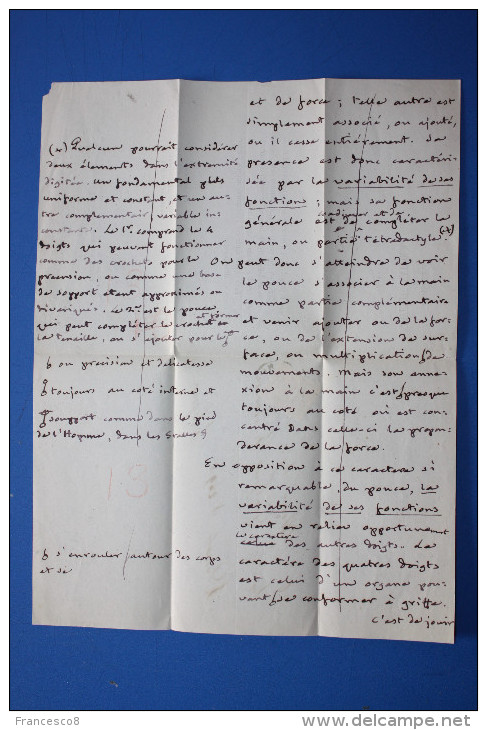 et de force; telle autre est
simplement associé, ou ajouté,
ou il cesse entiérement. Sa
presence est donc caractéri-
sée par la variabilité de ses
fonctions; mais sa fonction
coadiuver et de
générale est de complèter la
main, ou partie tétradactyle. (x)
On peut donc s'atteindre de voir
le pouce s'associer à la main
comme partie complémentaire
et venir ajouter ou de la for-
ce, ou de l'extension de sur-
face, ou multiplication de
mouvements. Mais son anne-
xion à la main c'est presque
toujours au coté où est con-
centré dans celle-ci la prepon-
derance de la force.
En opposition à ce caractere si
remarquable, du pouce, la
variabilité de ses fonctions
vient en relief opportunement
le caractère
celui des autres doigts. Le
caractère des quatres doigts
est celui d'une organe pou-
vant se conformer à griffe.
c'est de jouir
(x) Quelcun pourrait considérer
deux élements dans l'extremité
digitée. Un fondamental plus
uniforme et constant, et un au-
tre complementaire variable in-
constant. Le 1er comprend les 4
doigts qui peuvent fonctionner
comme des crochets pour la
prension, ou comme une base
de support etant approximés ou
divariqués. Le 2d est le pouce
et former
qui peut complèter le crochet
la tenaille, ou s'ajouter pour le
ou precision et delicatesse
toujours au coté interne et
support comme dans le pied
de l'Homme, dans les Gralles
18
s'enrouler autour des corps
et se
Francesco8
www.delcampe.net